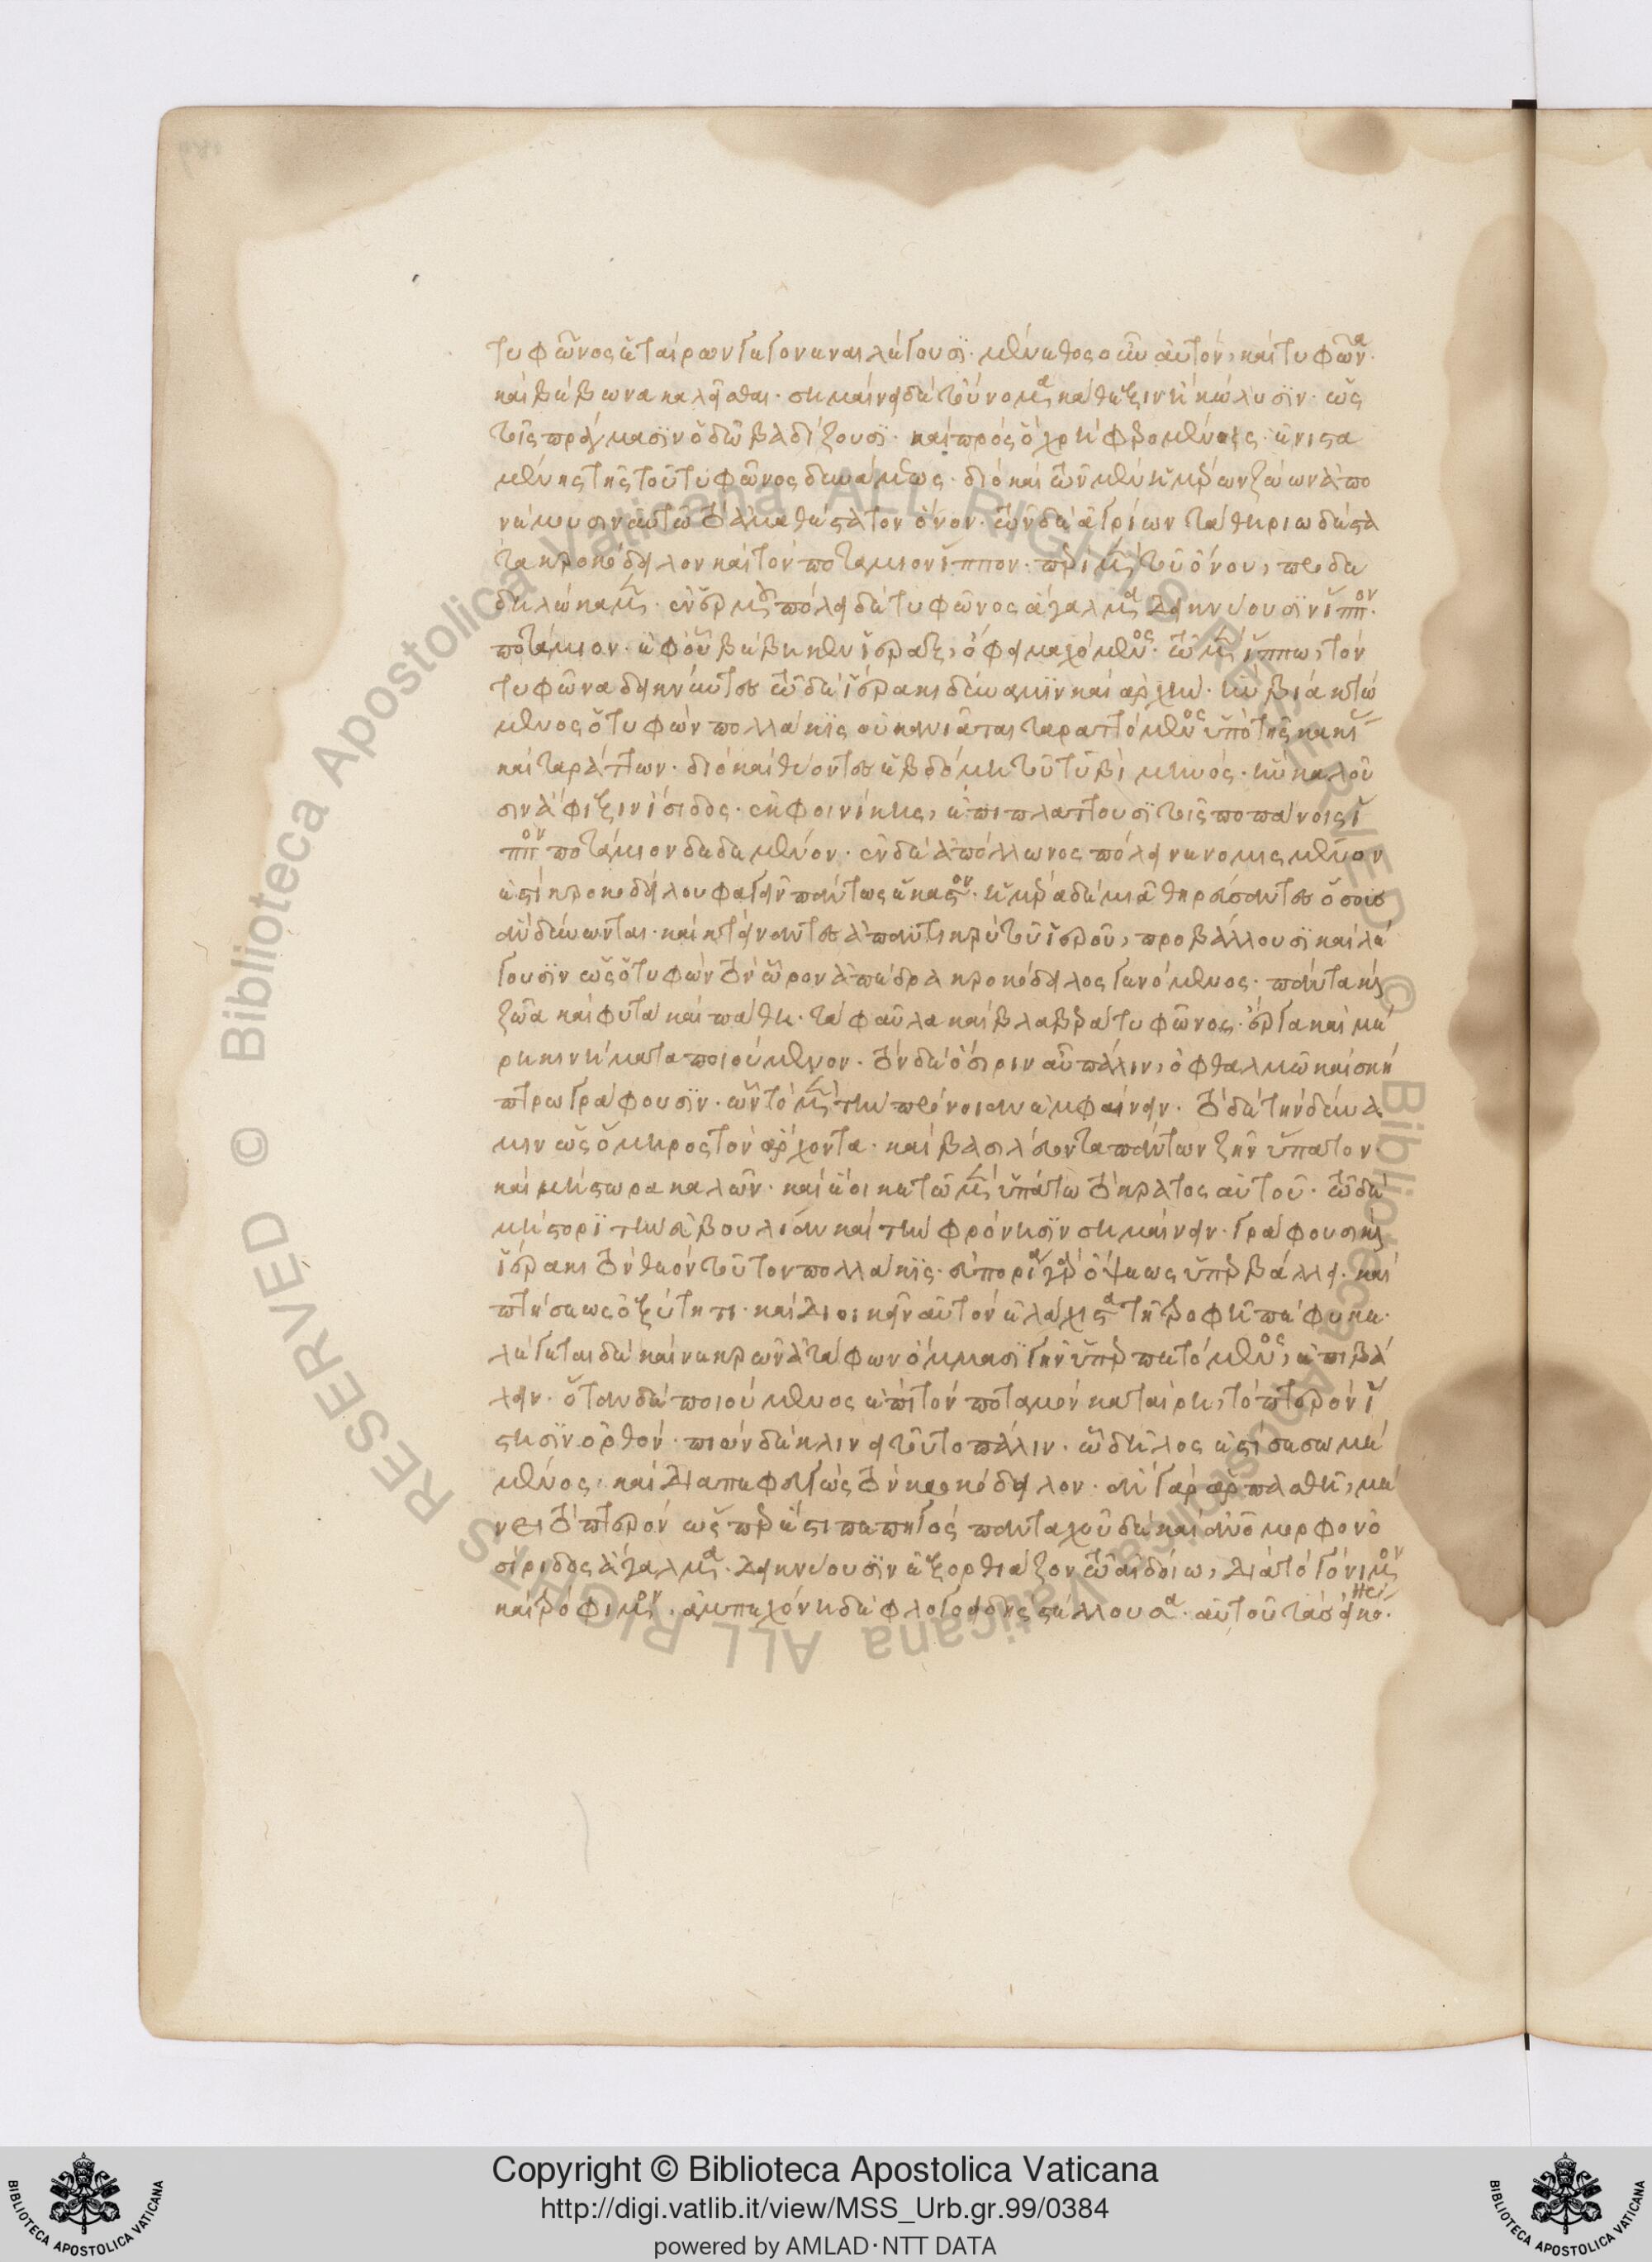 τυφῶνος ἑταίρων γεγονέναι λέγουσι· μανέθος δ' αὖ αὐτὸν, καὶ τυφῶνα·
καὶ βέβωνα καλεῖσθαι· σημαίνει δὲ τοὔνομα κάθεξιν ἢ κώλυσιν· ὡς
τοῖς πράγμασιν ὁδῷ βαδίζουσι· καὶ πρὸς ὃ χρὴ φερομένοις· ἐνιστα
μένης τῆς τοῦ τυφῶνος δυνάμεως· διὸ καὶ τῶν μὲν ἡμέρων ζώων ἀπο
νέμουσιν αὐτῷ τὸ ἀμαθέστατον ὄνον· τῶν δὲ ἀγρίων τὰ θηριωδέστα
τα κροκόδειλον καὶ τὸν ποτάμιον ἵππον· περὶ μὲν τοῦ ὄνου, προδε
δηλώκαμεν· ἐν ἑρμοῦ πόλει δὲ τυφῶνος ἄγαλμα δεικνύουσιν ἵππον
ποτάμιον· ἐφ' οὗ βέβηκεν ἱέραξ, ὄφει μαχόμενος· τῷ μὲν ἵππῳ, τὸν
τυφῶνα δεικνύντες τῷ δὲ ἱέρακι δύναμιν καὶ ἀρχὴν· ἣν βίᾳ κτώ
μενος ὁ τυφὼν πολλάκις οὐκ ἀνιᾶται ταραττόμενος ὑπὸ τῆς κακίας
καὶ ταράττων· διὸ καὶ θύοντες ἑβδόμῃ τοῦ τυβὶ μηνός· ἣν καλοῦ
σιν ἄφιξιν ἴσιδος ἐκ φοινίκης, ἐπιπλάττουσι τοῖς ποπάνοις ἵ
ππον ποτάμιον δεδεμένον· ἐν δὲ ἀπόλλωνος πόλει νενομισμένον
ἐστὶ κροκοδείλου φαγεῖν πάντως ἕκαστον· ἡμέρᾳ δὲ μιᾷ θηρεύσαντες ὅσους
ἂν δύνωνται· καὶ κτείναντες ἀπαντικρὺ τοῦ ἱεροῦ, προβάλλουσι καὶ λέ
γουσιν ὡς ὁ τυφὼν τὸν ὧρον ἀπέδρα κροκόδειλος γενόμενος· πάντα καὶ
ζῶα καὶ φυτὰ καὶ πάθη· τὰ φαῦλα καὶ βλαβερὰ τυφῶνος· ἔργα καὶ μέ
ρη κινήματα ποιούμενον· τὸν δὲ ὄσιριν αὖ πάλιν, ὀφθαλμῷ καὶ σκή
πτρῳ γράφουσιν· ὧν τὸ μὲν τὴν πρόνοιαν ἐμφαίνειν· τὸ δὲ τὴν δύνα
μιν ὡς ὅμηρος τὸν ἄρχοντα· καὶ βασιλεύοντα πάντων ζῆν ὕπατον
καὶ μήστωρα καλῶν· καὶ ἔοικε τῷ μὲν ὑπάτῳ τὸ κράτος αὐτοῦ· τῷ δὲ
μήστορι τὴν εὐβουλίαν καὶ τὴν φρόνησιν σημαίνειν· γράφουσι καὶ
ἱέρακι τὸν θεὸν τοῦτον πολλάκις· εὐτονίᾳ γὰρ ὄψεως ὑπερβάλλει· καὶ
πτήσεως ὀξύτητι· καὶ διοικεῖν αὐτὸν ἐλάχιστα τῇ τροφῇ πέφυκε·
λέγεται δὲ καὶ νεκρῶν ἀτάφων ὄμμασι γῆν ὑπερπετόμενος, ἐπιβά
λειν· ὅταν δὲ πιούμενος ἐπὶ τὸν ποταμὸν καταίρῃ, τὸ πτερὸν ἵ
στησιν ὀρθόν· πιὼν δὲ κλίνει τοῦτο πάλιν· ᾧ δῆλος ἐστὶ σεσωσμέ
μένος· καὶ διαπεφευγὼς τὸν κροκόδειλον· ἂν γὰρ ἁρπασθῇ, μέ
νει τὸ πτερὸν ὥσπερ ἔστι πεπηγὸς πανταχοῦ δὲ καὶ ἀνθρωπόμορφον ὀ
σίριδος ἄγαλμα· δεικνύουσιν ἐξορθιάζον τῷ αἰδοίῳ, διὰ τὸ γόνιμον
καὶ τρόφιμον· ἀμπεχόνη δὲ φλογοειδὴς στέλλουσα· αὐτοῦ τὰς εἰκόνας